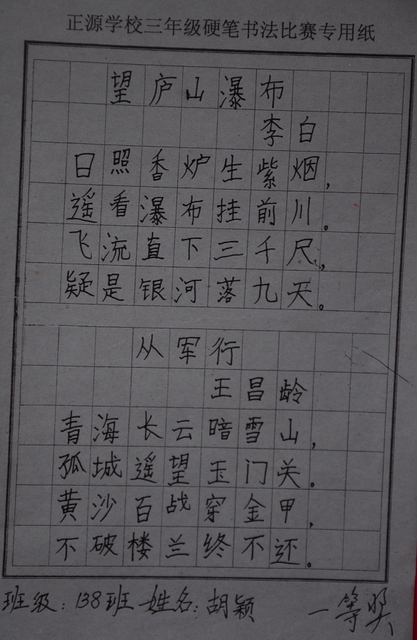 正源学校三年级硬笔书法比赛专用纸
望庐山瀑布
李白
日照香炉生紫烟，
遥看瀑布挂前川。
飞流直下三千尺，
疑是银河落九天。
从军行
王昌龄
青海长云暗雪山，
孤城遥望玉门关。
黄沙百战穿金甲，
不破楼兰终不还。
班级：138班 姓名：胡颖 一等奖